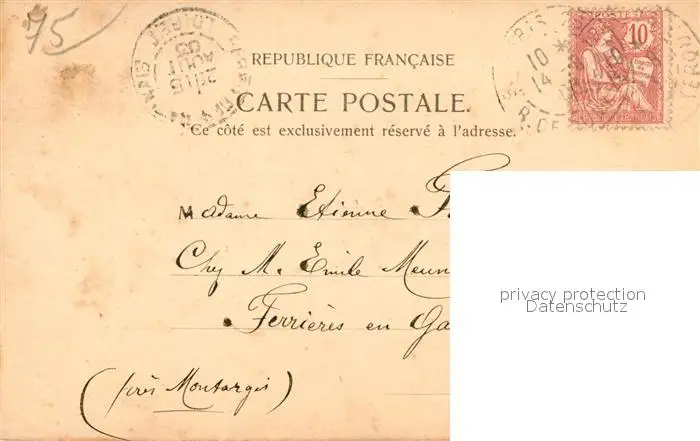 75
REPUBLIQUE FRANÇAISE
CARTE POSTALE.
Ce côté est exclusivement réservé à l'adresse.
POSTES
10
REPUBLIQUE FRANÇAISE
Madame Etienne
Chez M. Emile Meun
Ferrières en Ga
(près Montargis)
privacy protection
Datenschutz